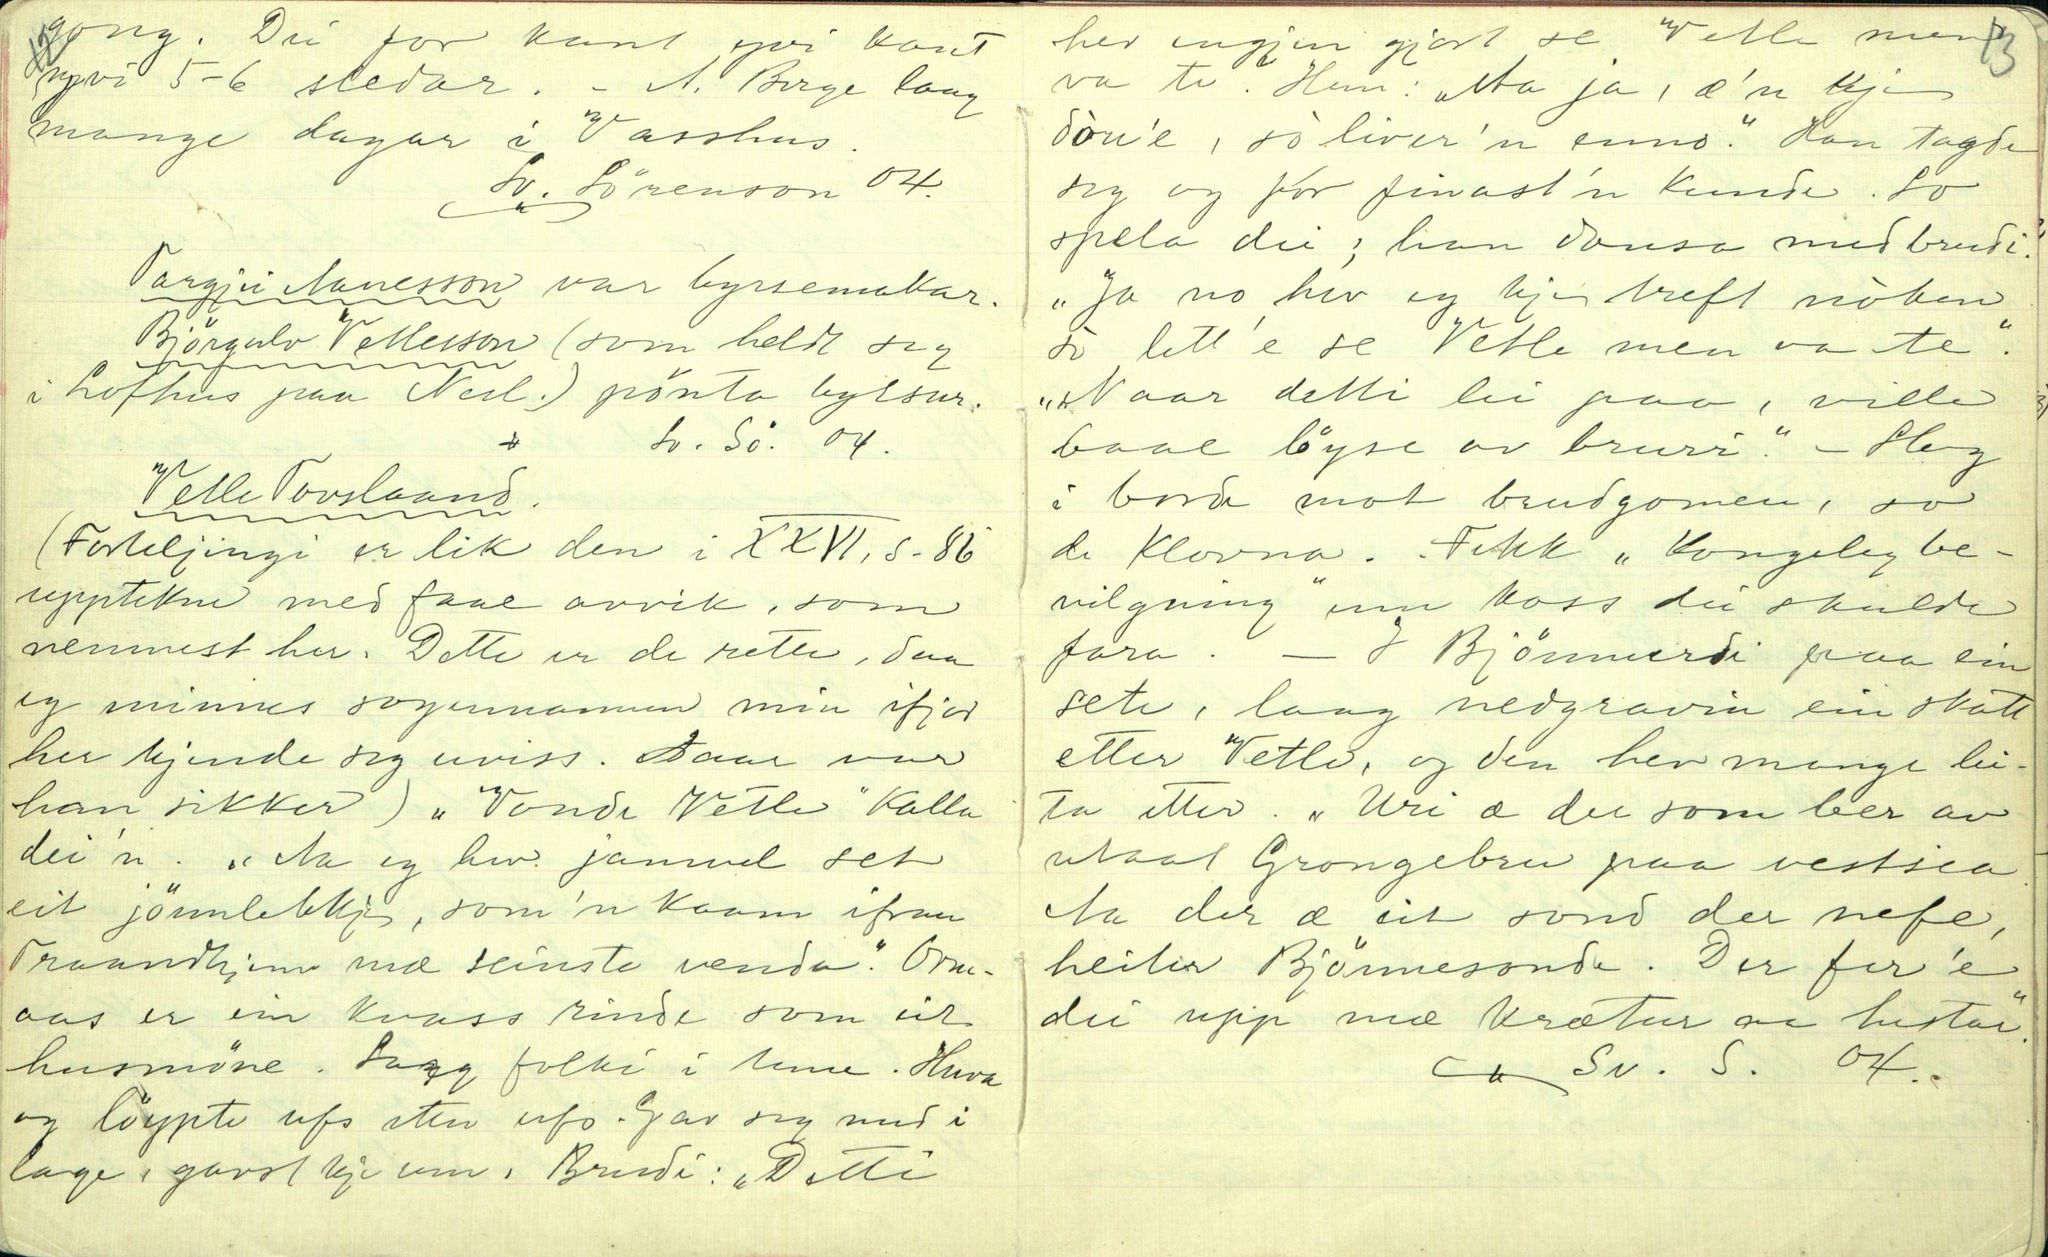 12
gong. Dei for kant yvi kant
yvi 5-6 stedar. - A. Berge laag
mange dagar i Vasshus.
Sv. Sörenson 04.
Targjei Aanesson var byrsemakar.
Björgulv Vetlesson (som heldt seg
i Lofthus paa Nesl.) pönta byrsur.
Sv. Sö. 04.
Vetle Torslaand.
(Forteljingi er lik den i XXVI, s. 86
upptekne med faae avvik, som
nemnest her. Dette er de rette, daa
eg minnes sogemannen min ifjor
her kjende seg uviss. Aaar var
han sikker) "Vonde Vetle" kalla
dei'n. "Aa eg hev jamvel set
eit jönnlekkje, som'n kaam ifraa
Traandhjem mæ seinste venda." Orm-
aas er ein kvass rinde som eit
husmöne. Laag folki i tune. Huva
og löypte ufs etter ufs. Gav seg ned i
lage, gavst kje um. Brudi: "Detti
13
hev engjen gjort se Vetle men
va te. Hun: "Aa ja, æ'n kje
dön'e, so liver'n enno." Han tagde
seg og för finast'n kunde. So
spela dei; han dansa med brudi.
"Ja no hev eg kje treft nòken
so lett'e se Vetle men va te".
"Naar detti lei paa, ville
baae löyse av bruri." - Hogg
i borde mot brudgomen, so
de klovna. Fekk "kongeleg be-
vilgning" um koss dei skulde
fara. - I Bjönnurdi paa ein
sete, laag nedgravin ein skatt
etter Vetle, og den hev mange lei-
ta etter. "Uri æ dei som ber av
utaat Grongebru paa vestsia
Aa der æ eit sond der nefe,
heiter Bjönnesonde. Der fer'e
dei upp mæ krætur aa hestar".
Sv. S. 04.